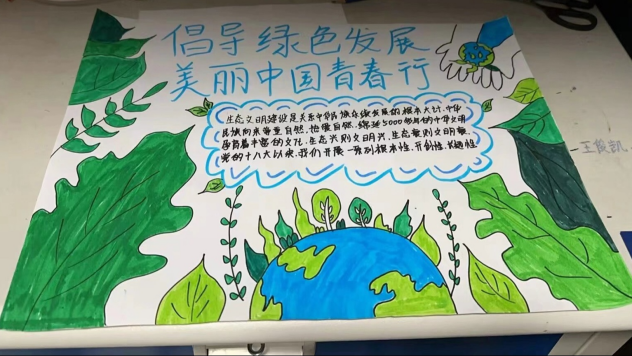 倡导绿色发展
美丽中国青春行
生态文明建设是关系中华民族永续发展的根本大计，中华
民族向来尊重自然，热爱自然，绵延5000多年的中华文明
孕育着丰富的文化，生态兴则文明兴，生态衰则文明衰，
党的十八大以来，我们开展一系列根本性，开创性，长远性